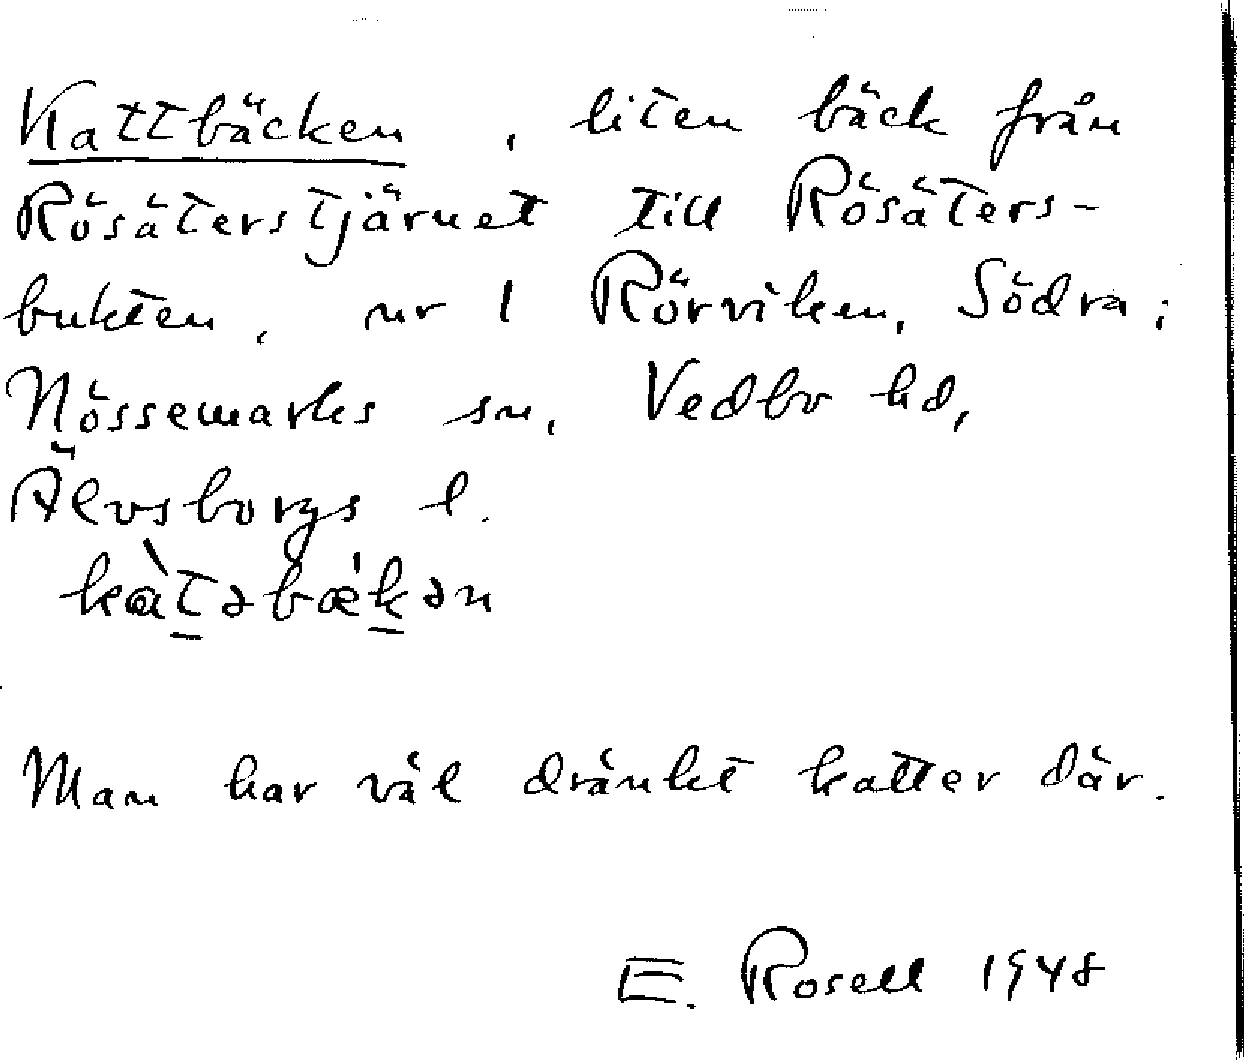 Kattbäcken, liten bäck från
Rösäterstjärnet till Rösäters-
bukten, nr 1 Rörviken, Södra;
Nössemarks sn, Vedbo hd,
Älvsborgs l.
kàt̲əbæ̀k̲ən
Man har väl dränkt katter där.
E. Rosell 1948